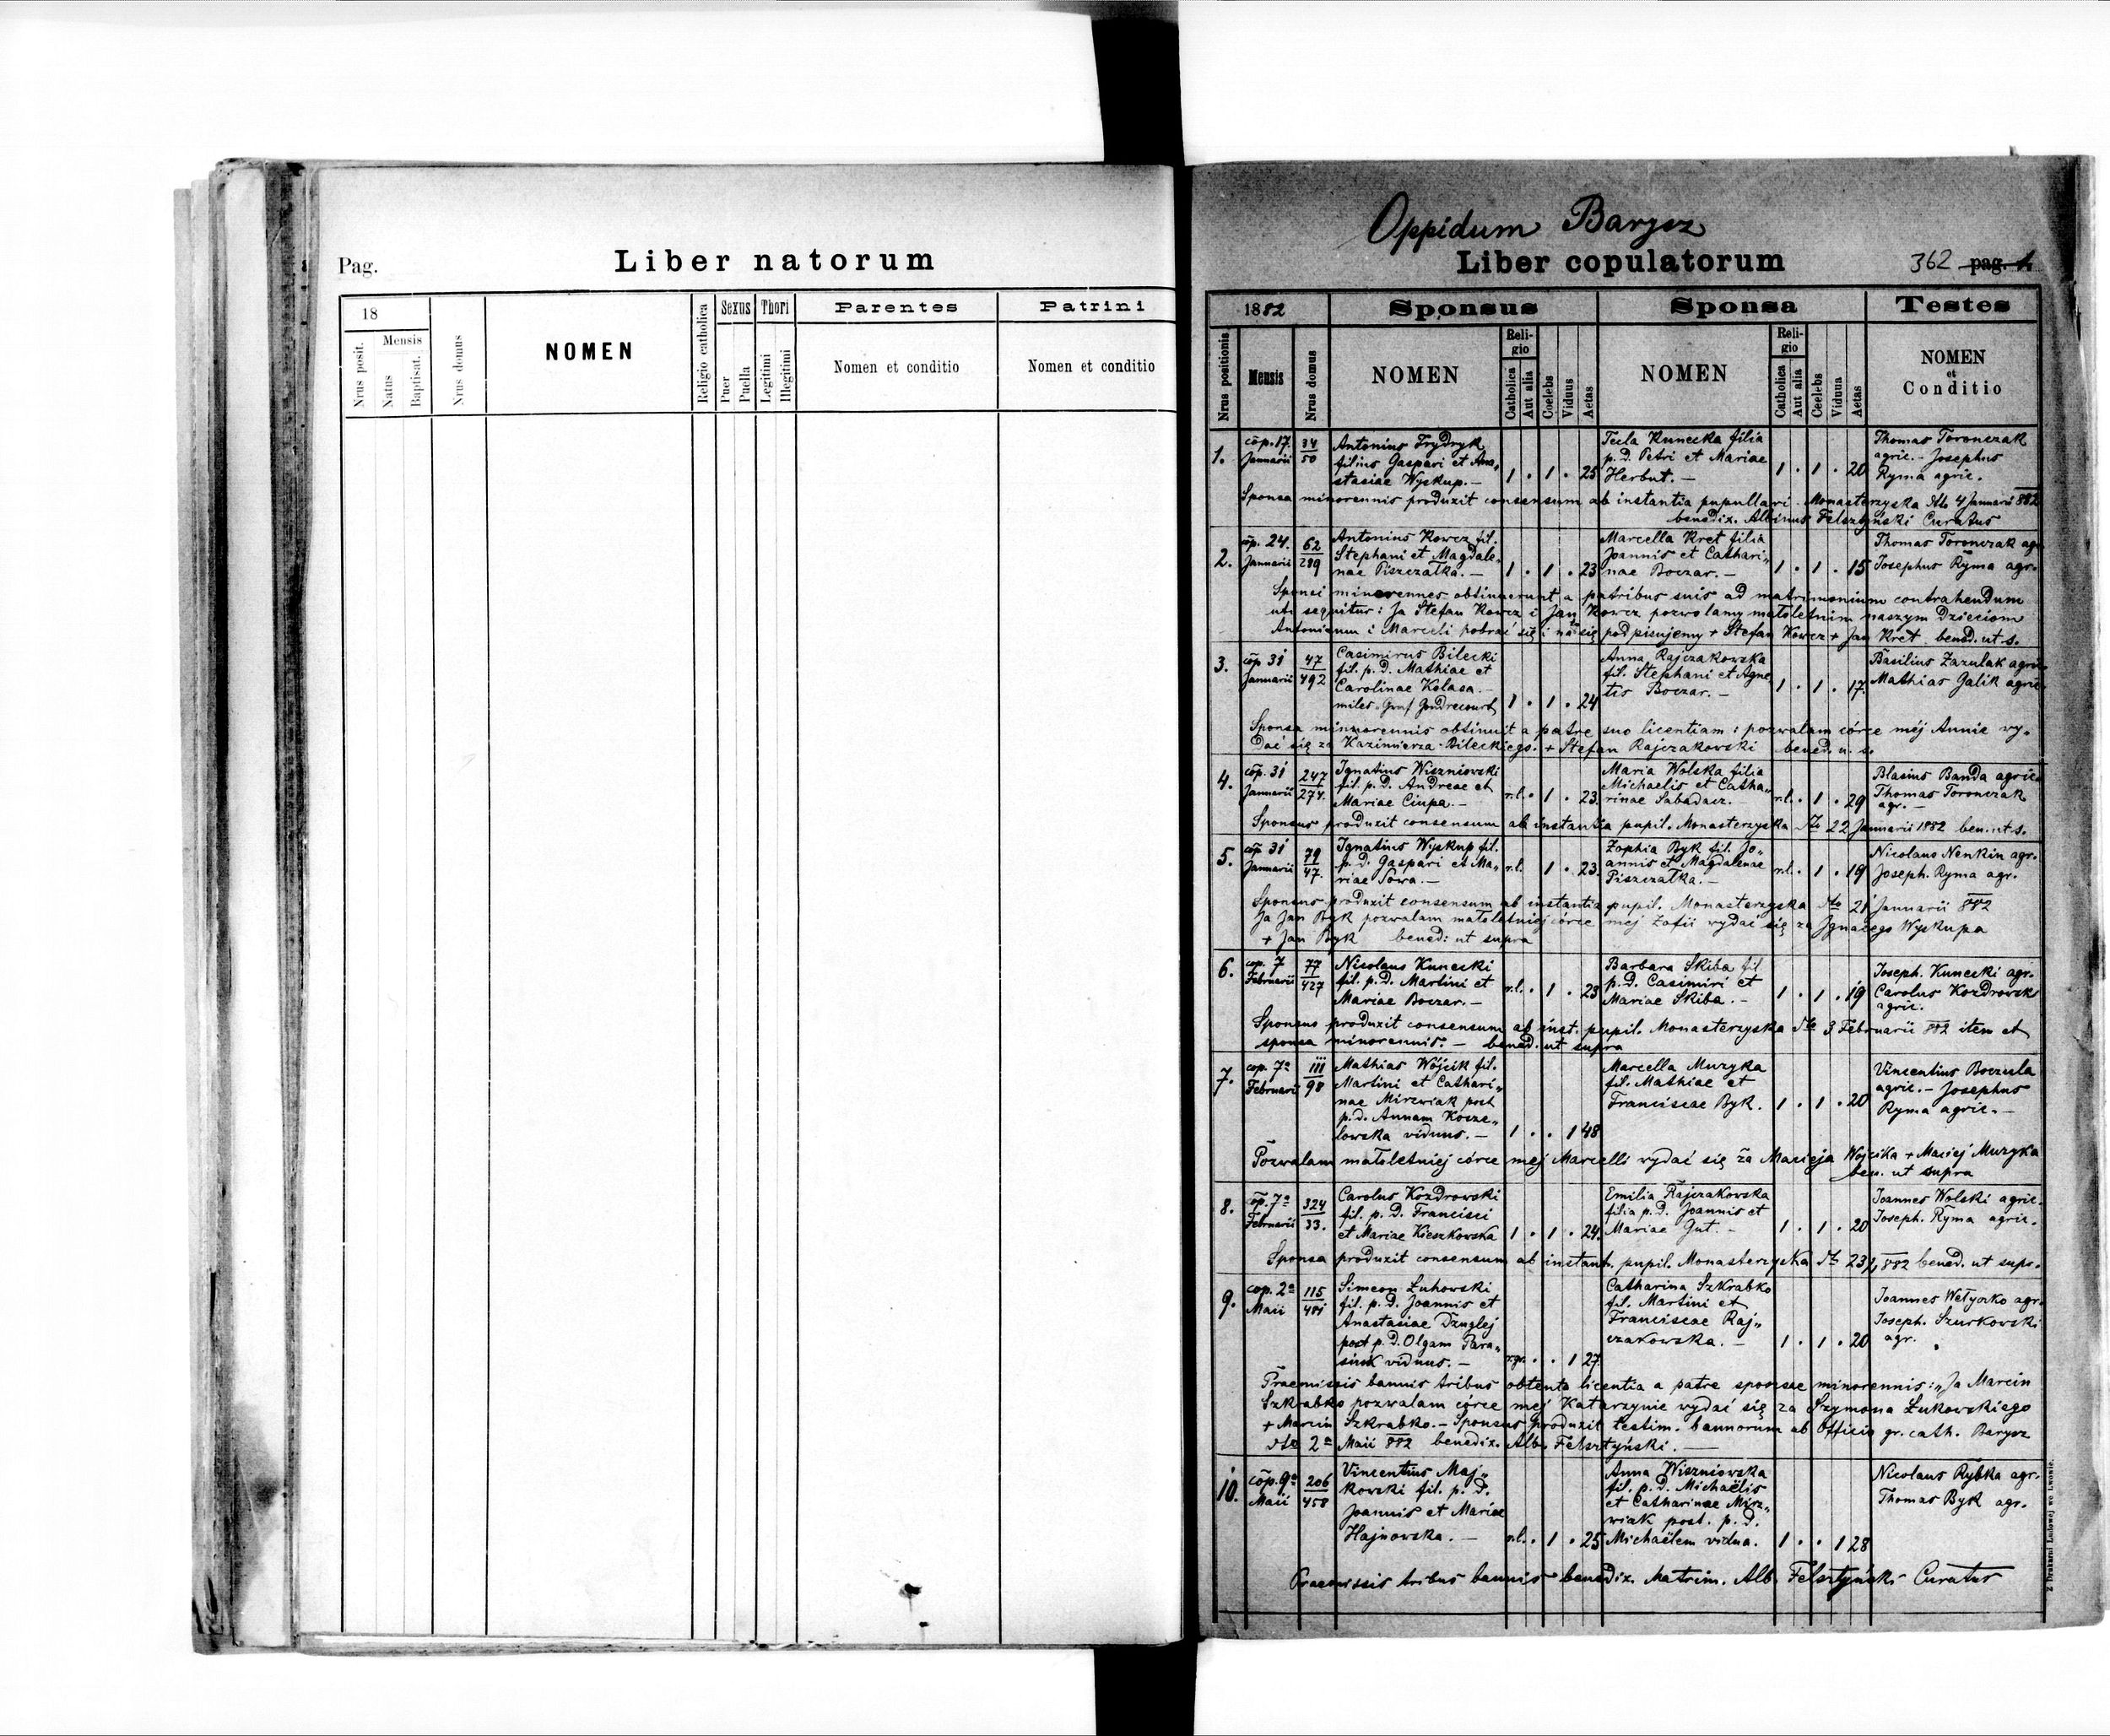 Pag.
Liber natorum
18
Nrus posit.
Mensis
Natus
Baptisat.
Nrus domus
NOMEN
Religio catholica
Sexus
Puer
Puella
Thori
Legitimi
Illegitimi
Parentes
Nomen et conditio
Patrini
Nomen et conditio
Oppidum Barysz
Liber copulatorum
362 pag. 1.
1882
Sponsus
Sponsa
Testes
Nrus positionis
Mensis
Nrus domus
NOMEN
Religio
Catholica
Aut alia
Coelebs
Viduus
Aetas
NOMEN
Religio
Catholica
Aut alia
Ceelebs
Vidua
Aetas
NOMEN
et
Conditio
1.
cop. 17.
Januarii
34
50
Antonius Frydryk
filius Gaspari et Ana„
stasiae Wyskup. –
1 . 1 . 25
Tecla Kunecka filia
p. D. Petri et Mariae
Herbut. –
1 . 1 . 20
Thomas Toronczak
agric. – Josephus
Ryma agric.
Sponsa minorennis produxit consensum ab instantia pupillari Monasterzyska dto 4 Januarii 882
benedix. Albinus Felsztyński Curatus
2.
cop. 24.
Januarii
62
289
Antonius Kowcz fil.
Stephani et Magdale„
nae Piszczałka. –
1 . 1 . 23
Marcella Kret filia
Joannis et Cathari„
nae Boczar. –
1 . 1 . 15
Thomas Toronczak agr.
Josephus Ryma agr.
Sponsi minorennes obtinuerunt a patribus suis ad matrimonium contrahendum
uti sequitur: Ja Stefan Kowcz i Jan Kowcz pozwalamy małoletnim naszym Dzieciom
Antoniemu i Marceli pobrać się i na to się podpisujemy + Stefan Kowcz + Jan Kret bened. ut s.
3.
cop 31
Januarii
47
492
Casimirus Bilecki
fil. p. D. Mathiae et
Carolinae Kolasa. –
miles Graf Gondrecourt
1 . 1 . 24
Anna Rajczakowska
fil. Stephani et Agne
tis Boczar. –
1 . 1 . 17.
Basilius Zazulak agric.
Mathias Galik agric.
Sponsa minorennis obtinuit a patre suo licentiam: pozwalam córce méj Annie wy„
dać się za Kazimierza Bileckiego. + Stefan Rajczakowski bened. u. s.
4.
cop. 31
Januarii
247
274.
Ignatius Wiszniowski
fil. p. D. Andreae et
Mariae Ciupa. –
r.l. . 1 . 23.
Maria Wolska filia
Michaelis et Catha„
rinae Sabadasz. –
r.l. . 1 . 29
Blasius Banda agric.
Thomas Toronczak
agr. –
Sponsus produxit consensum ab instantia pupil. Monasterzyska dto 22 Januarii 1882 ben. ut s.
5.
cop 31
Januarii
79
47.
Ignatius Wyskup fil.
p. d. Gaspari et Ma„
riae Sowa. –
r.l. 1 . 23.
Zophia Byk fil. Jo„
annis et Magdalenae
Piszczałka. –
r.l. . 1 . 19
Nicolaus Nenkin agr.
Joseph. Ryma agr.
Sponsus produxit consensum ab instantia pupil. Monasterzyska dto 21 Januarii 882
Ja Jan Byk pozwalam małoletniej córce mej Zofii wydać się za Ignacego Wyskupa
+ Jan Byk bened: ut supra
6.
cop. 7
Februarii
77
427
Nicolaus Kunecki
fil. p. D. Martini et
Mariae Boczar. –
r.l. . 1 . 23
Barbara Skiba fil
p. D. Casimiri et
Mariae Skiba. –
1 . 1 . 19
Joseph. Kunecki agr.
Carolus Kozdrowski
agric.
Sponsus produxit consensum ab inst. pupil. Monasterzyska dto 3 Februarii 882 item et
sponsa minorennis. – bened. ut supra
7.
cop. 7a
Februarii
111
98
Mathias Wójcik fil.
Martini et Cathari„
nae Mirzwiak post
p. d. Annam Kosze„
lowska viduus. –
1 . . 1 48
Marcella Muzyka
fil. Mathiae et
Franciscae Byk.
1 . 1 . 20
Vincentius Boczula
agric. – Josephus
Ryma agric. –
Pozwalam małoletniej córce mej Marcelli wydać się za Macieja Wojcika + Maciej Muzyka
ben. ut supra
8.
cop. 7a
Februarii
324
33.
Carolus Kozdrowski
fil. p. D. Francisci
et Mariae Kieszkowska
1 . 1 . 24.
Emilia Rajczakowska
filia p. D. Joannis et
Mariae Gut. –
1 . 1 . 20
Joannes Wolski agric.
Joseph. Ryma agric.
Sponsa produxit consensum ab instant. pupil. Monasterzyska dto 23/1 882 bened. ut supr.
9.
cop. 2a
Maii
115
481
Simeon Łuhowski
fil. p. D. Joannis et
Anastasiae Dzuglej
post p. D. Olgam Para„
siuk viduus. –
r.gr. . . 1 27.
Catharina Szkrabko
fil. Martini et
Franciscae Raj„
czakowska. –
1 . 1 . 20
Joannes Wetyczko agr.
Joseph. Szurkowski
agr.
Praemissis bannis tribus obtenta licentia a patre sponsae minorennis: „Ja Marcin
Szkrabko pozwalam córce mej Katarzynie wydać się za Szymona Łukowskiego
+ Marcin Szkrabko. – Sponsus produxit testim. bannorum ab Officio gr. cath. Barysz
dto 2a Maii 882 benedix. Alb. Felsztyński. –
10.
cop. 9a
Maii
206
458
Vincentius Maj„
kowski fil. p. D.
Joannis et Mariae
Hajnowska. –
r.l. . 1 . 25
Anna Wiszniowska
fil. p. D. Michaëlis
et Catharinae Mirz„
wiak post. p. D.
Michaëlem vidua.
1 . . 1 28
Nicolaus Rybka agr.
Thomas Byk agr.
Praemissis tribus bannis benedix. Matrim. Alb. Felsztyński Curatus
Z Drukarni Ludowej we Lwowie.